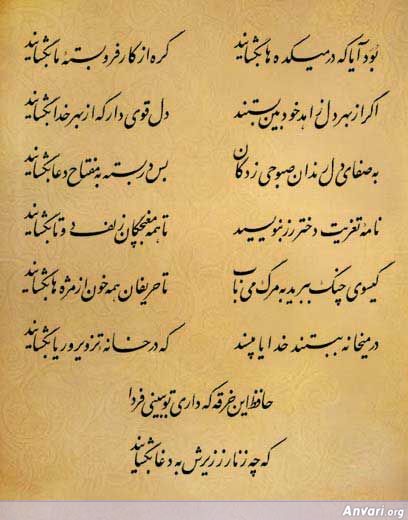 بُوَد آیا که در میکده ها بگشایند گره از کار فروبستهٔ ما بگشایند
اگر از بهر دل زاهد خودبین بستند دل قوی دار که از بهر خدا بگشایند
به صفای دل رندان صبوحی زدگان بس در بسته به مفتاح دعا بگشایند
نامهٔ تعزیت دختر رز بنویسید تا همه مغبچگان زلف دو تا بگشایند
گیسوی چنگ ببرید به مرگ می ناب تا حریفان همه خون از مژه ها بگشایند
در میخانه ببستند خدایا مپسند که در خانهٔ تزویر و ریا بگشایند
حافظ این خرقه که داری تو ببینی فردا
که چه زنار ز زیرش به دغا بگشایند
Anvari.org